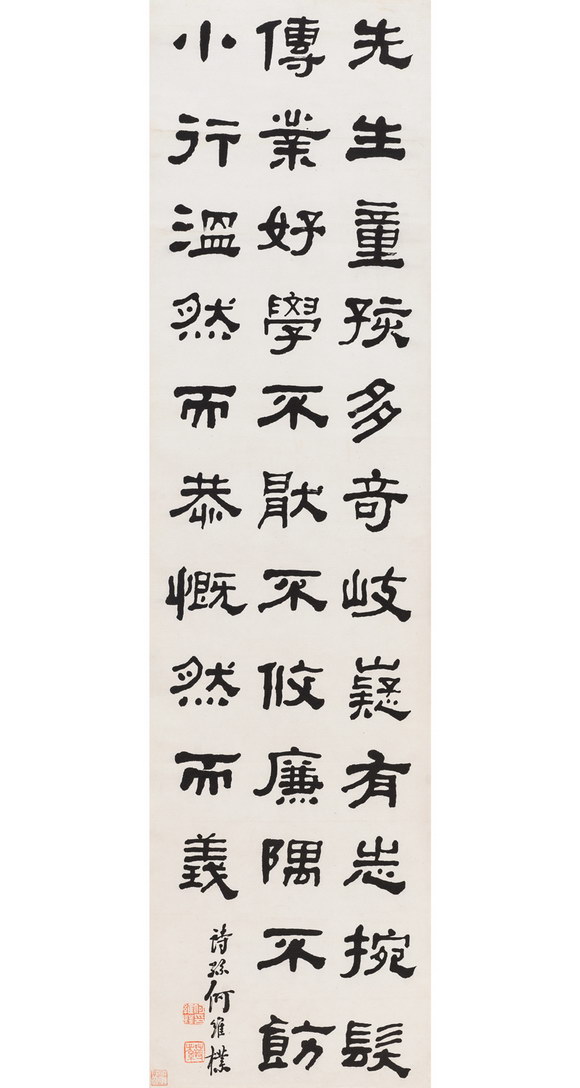 先生童孩多奇岐嶷有志捥髮
傳業好學不猒不攸廉隅不飭
小行溫然而恭慨然而義
詩孫何維樸